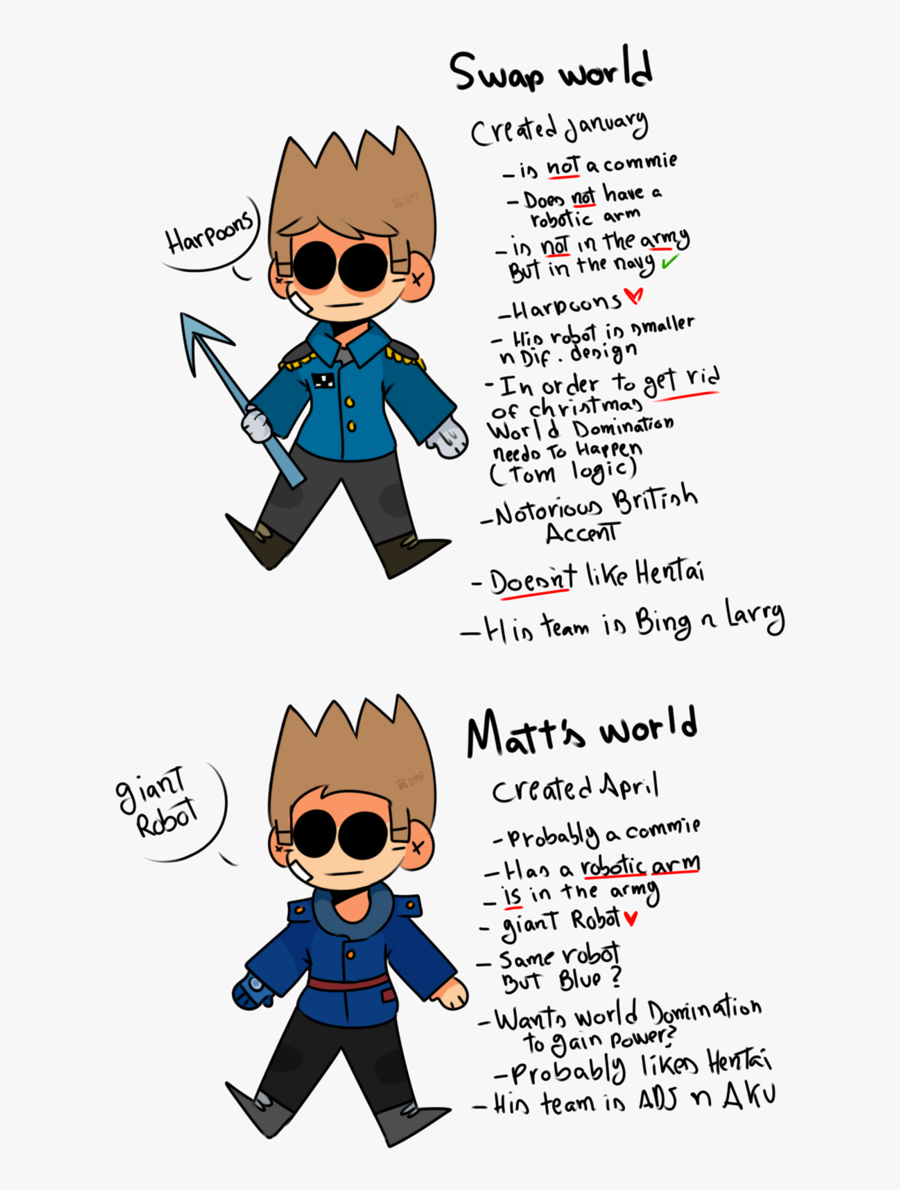 Swap world
Created January
- is not a commie
- Does not have a
robotic arm
- is not in the army
But in the navy ✓
Harpoons
- Harpoons ♥
- His robot is smaller
n Dif. design
- In order to get rid
of christmas
World Domination
needs to Happen
(Tom logic)
- Notorious British
Accent
- Doesn't like Hentai
- His team is Bing n Larry
Matt's world
Created April
giant
Robot
- Probably a commie
- Has a robotic arm
- is in the army
- giant Robot ♥
- Same robot
But Blue?
- Wants world Domination
to gain power?
- Probably likes Hentai
- His team is ADS n AKU